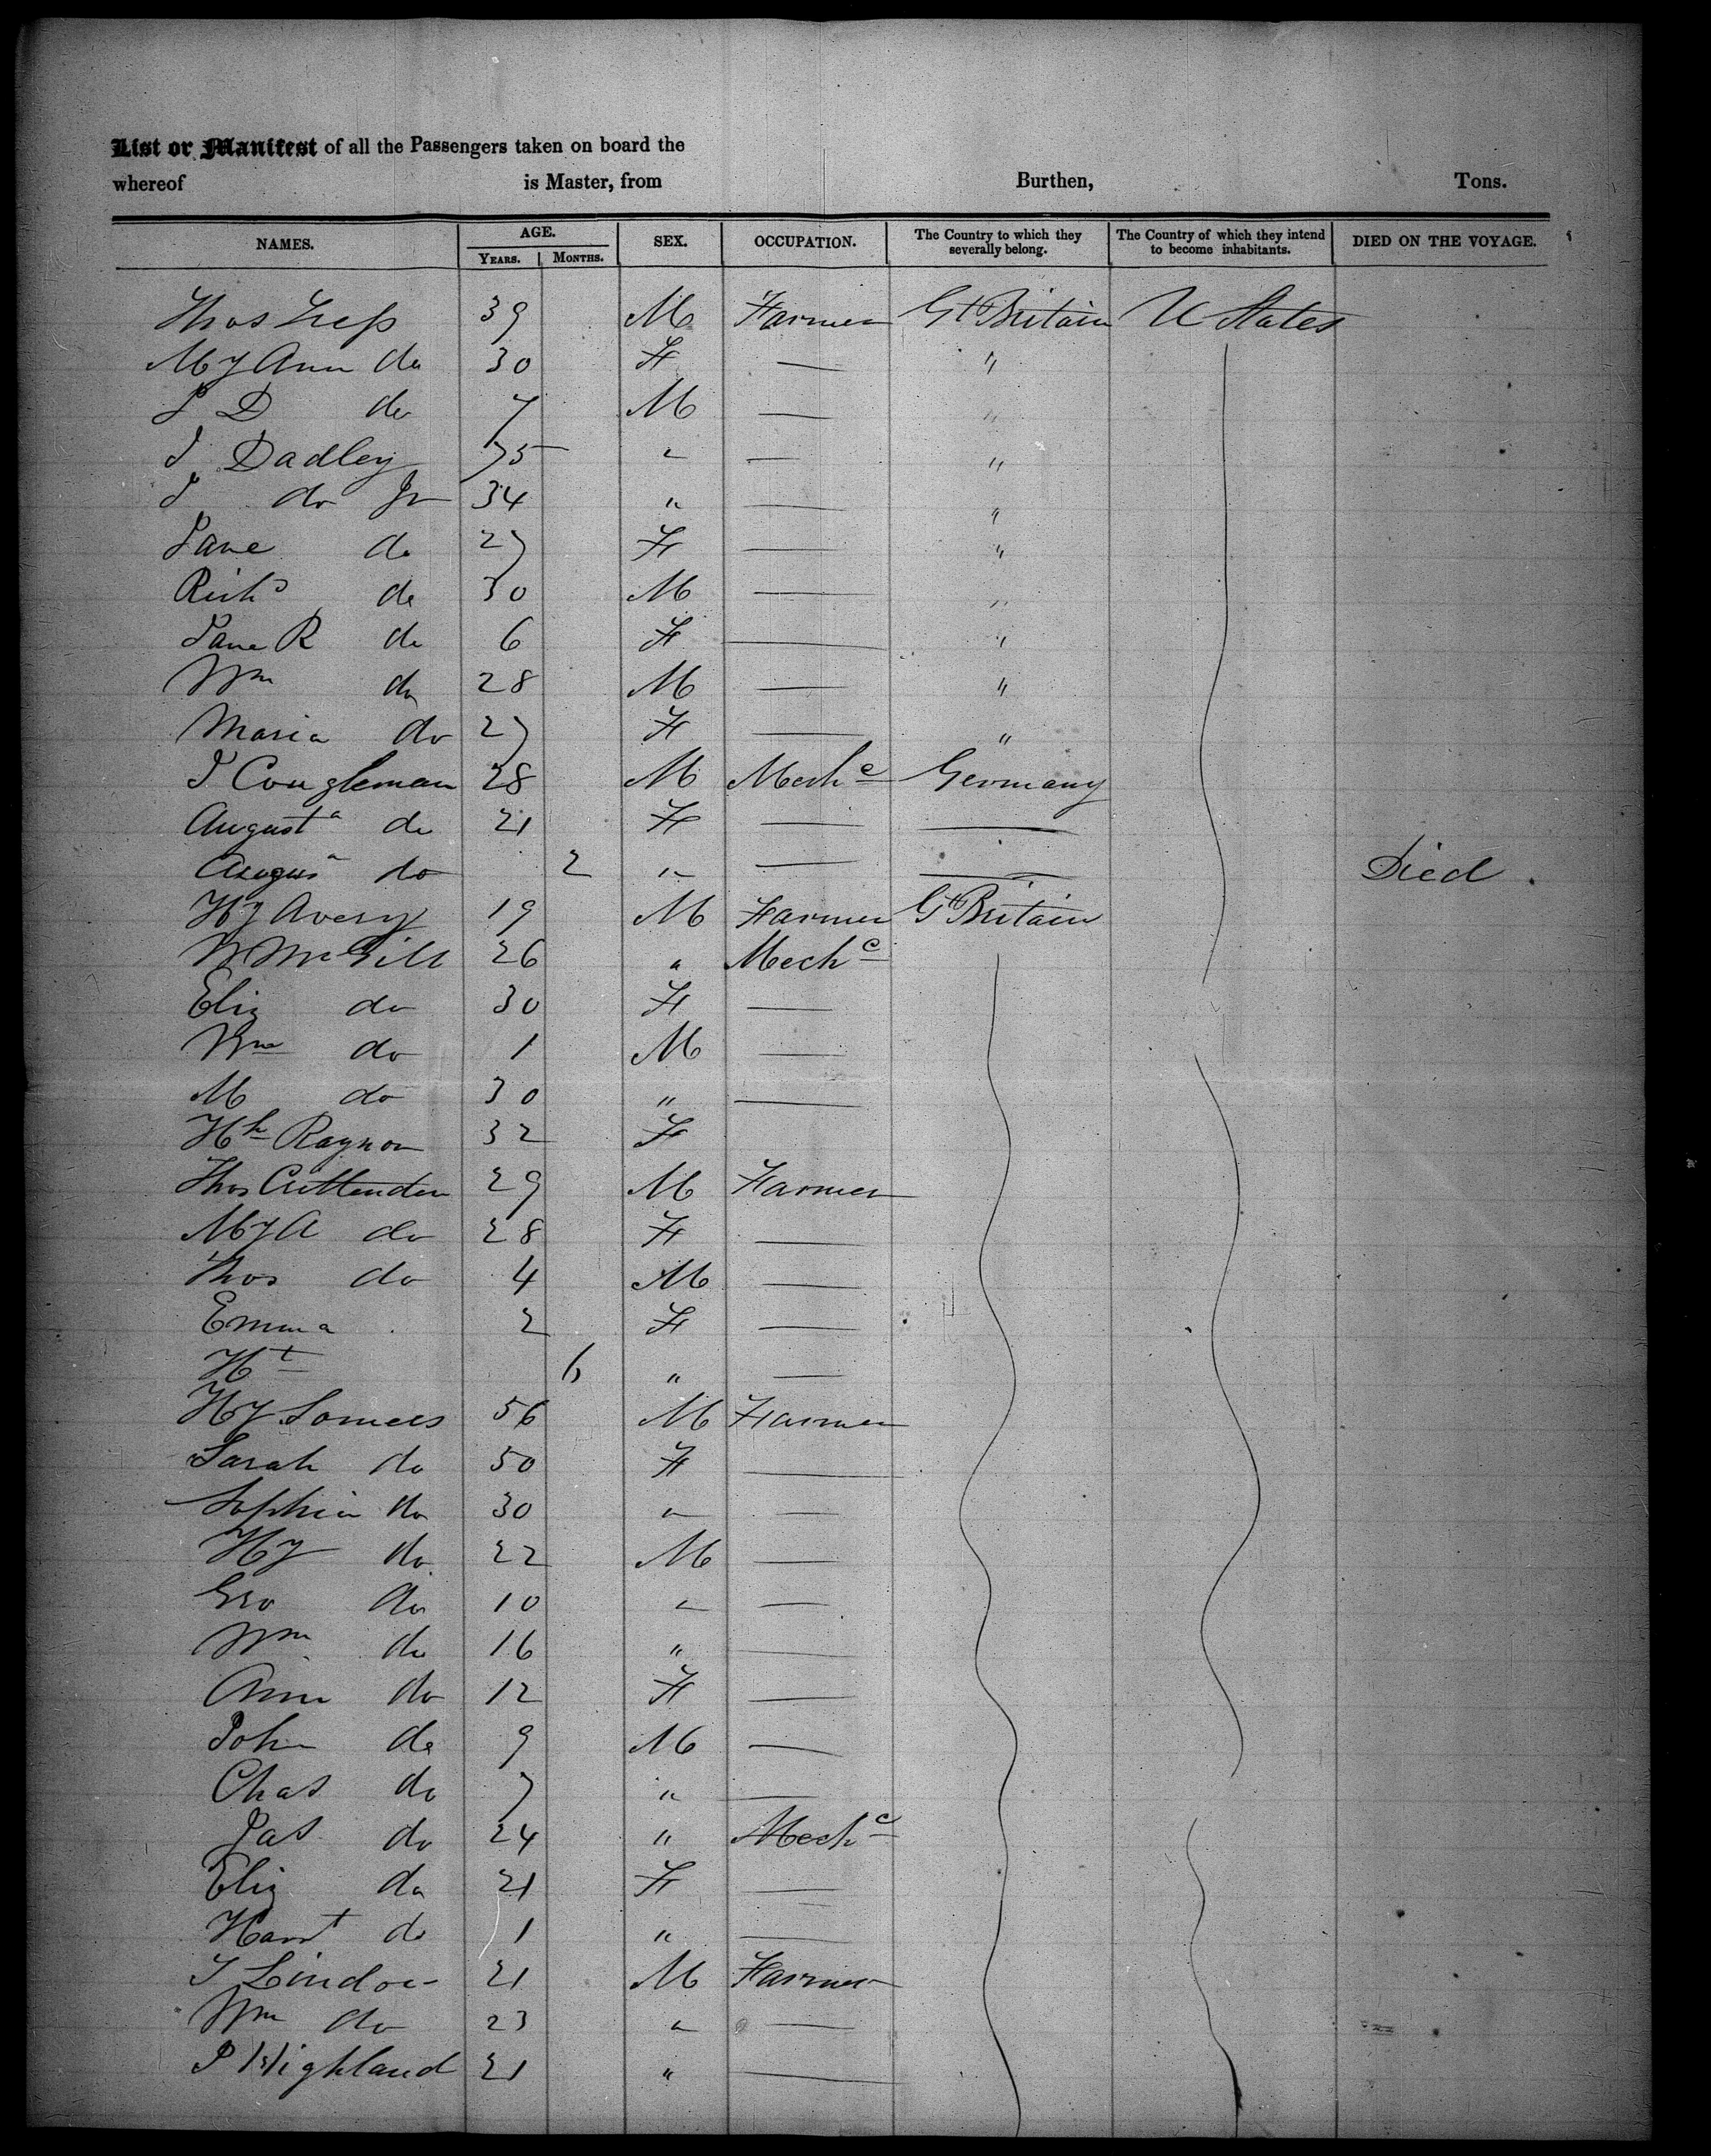 List or Manifest of all the Passengers taken on board the
whereof is Master, from Burthen, Tons.
NAMES. AGE. SEX. OCCUPATION. The Country to which they severally belong. The Country of which they intend to become inhabitants. DIED ON THE VOYAGE.
YEARS. MONTHS.
Thos 39 M Farmer Gt Britain U States
My Ann do 30 F — "
D do 7 M — "
J Dadley 75 " — "
J do Jr 34 " — "
Jane do 27 F — "
Richd do 30 M — "
Jane R do 6 F — "
Wm do 28 M — "
Maria do 27 F — "
J Congleman 28 M Mechc Germany
Augusta do 21 F — —
Augusa do 2 " — — Died
Hy Avery 19 M Farmer Gt Britain
W McGill 26 " Mechc
Eliz do 30 F —
Wm do 1 M —
M do 30 " —
Hh Raynor 32 F
Thos Crittenden 29 M Farmer
My A do 28 F —
Thos do 4 M —
Emma 2 F —
Ht 6 " —
Hy Somers 56 M Farmer
Sarah do 50 F —
Sophia do 30 " —
Hy do 22 M —
Geo do 10 " —
Wm do 16 " —
Ann do 12 F —
John do 9 M —
Chas do 7 " —
Jas do 24 " Mechc
Eliz do 21 F —
Harrt do 1 " —
J Lindon 21 M Farmer
Wm do 23 " —
P Highland 21 " —